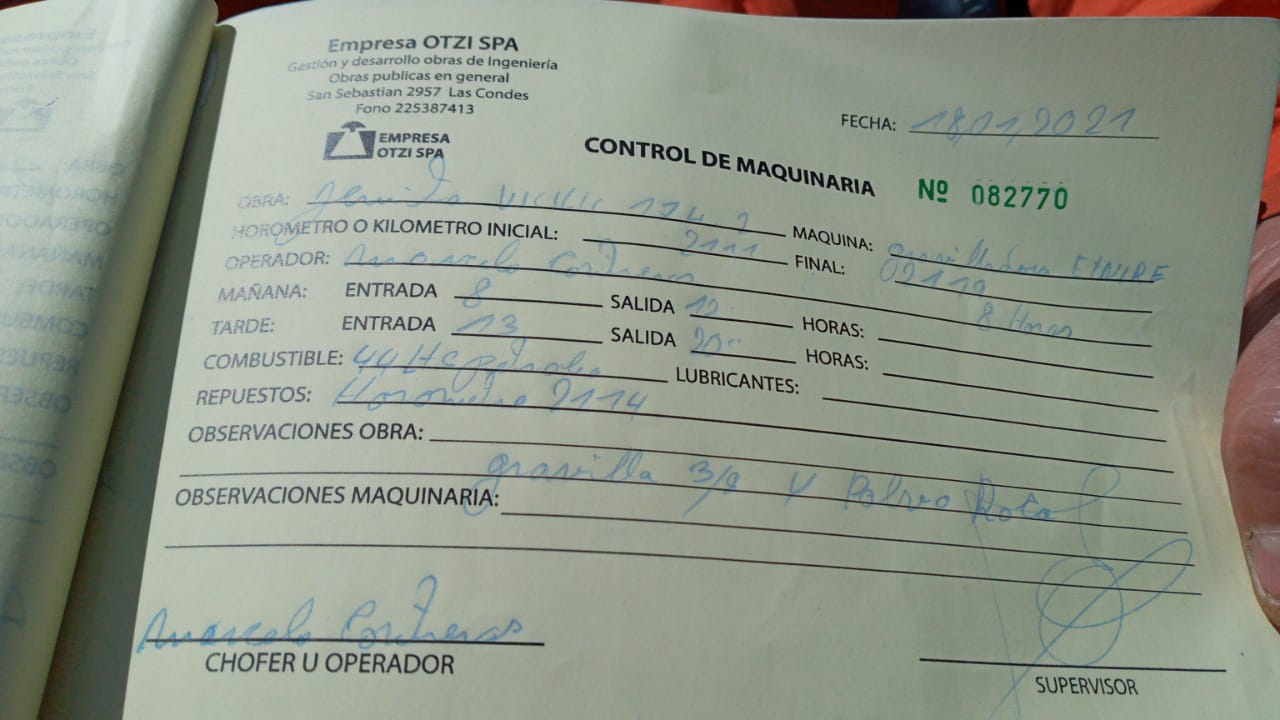 Empresa OTZI SPA
Gestión y desarrollo obras de Ingeniería
Obras publicas en general
San Sebastian 2957 Las Condes
Fono 225387413
EMPRESA
OTZI SPA
FECHA: 18,01,2021
CONTROL DE MAQUINARIA Nº 082770
OBRA:
MAQUINA:
HOROMETRO O KILOMETRO INICIAL: 2111 FINAL: 02119
OPERADOR: Marcelo Contreras 8 Horas
MAÑANA: ENTRADA 8 SALIDA 12 HORAS:
TARDE: ENTRADA 13 SALIDA 20 HORAS:
COMBUSTIBLE: LUBRICANTES:
REPUESTOS: Horometro 2114
OBSERVACIONES OBRA:
gravilla 3/8 y Polvo Roca
OBSERVACIONES MAQUINARIA:
Marcelo Contreras
CHOFER U OPERADOR
SUPERVISOR